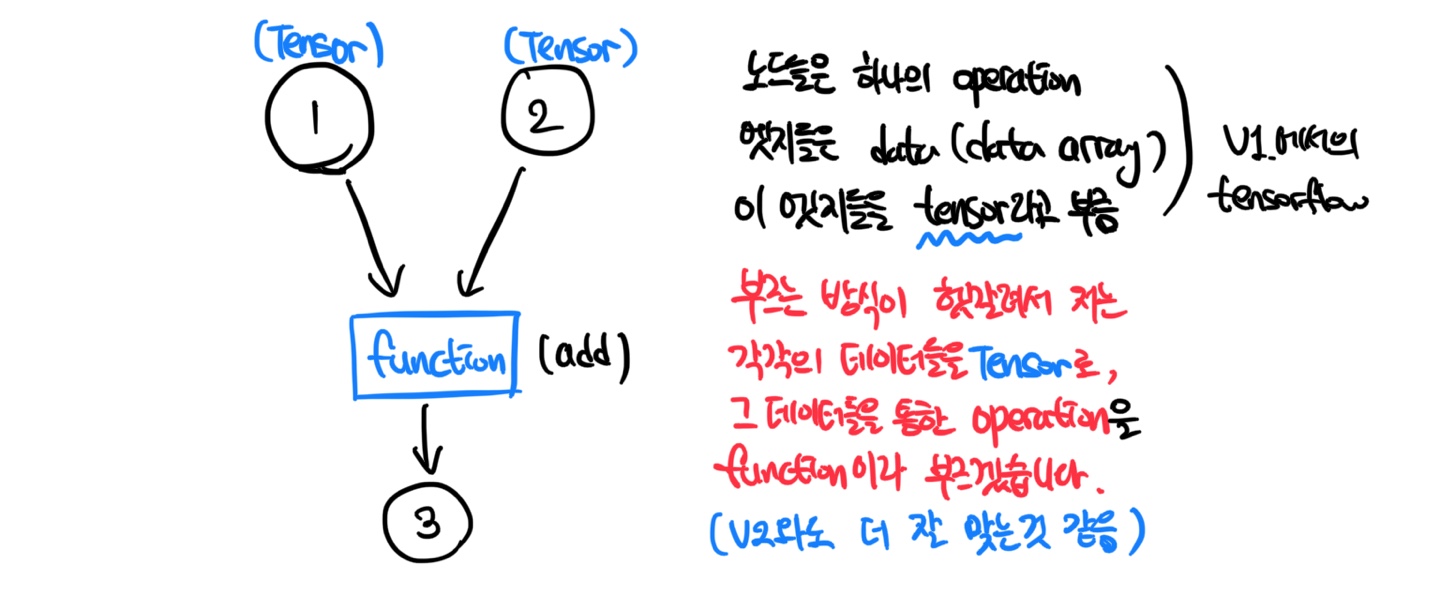 (Tensor) (Tensor)
1 2
function (add)
3
노드들은 하나의 operation
엣지들은 data (data array)
이 엣지들을 tensor라고 부름
V1.에서의
tensorflow
부르는 방식이 헷갈려서 저는
각각의 데이터들을 Tensor로,
그 데이터들을 통한 operation을
function이라 부르겠습니다.
(V2와도 더 잘 맞는것 같음)